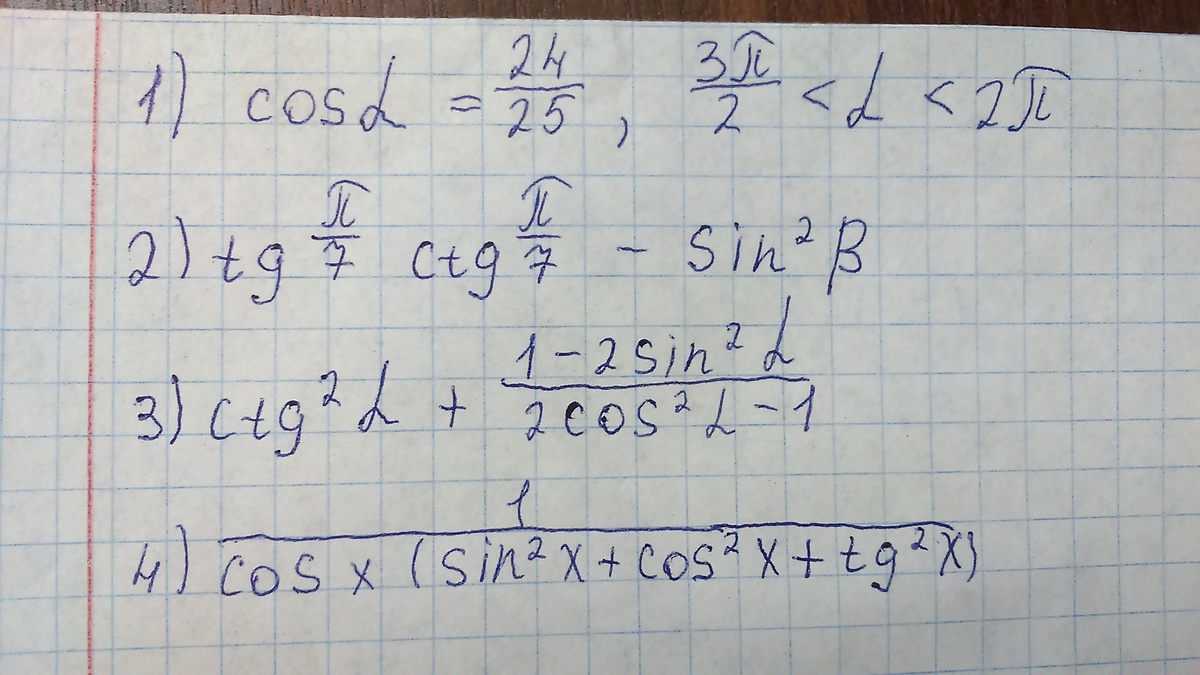 1) cos α = 24/25, 3π/2 < α < 2π
2) tg π/7 ctg π/7 - sin² β
3) ctg² α + (1 - 2 sin² α)/(2 cos² α - 1)
4) 1/(cos x (sin² x + cos² x + tg² x))